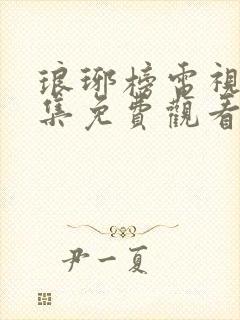 琅琊榜電視
集免費觀看
尹一夏